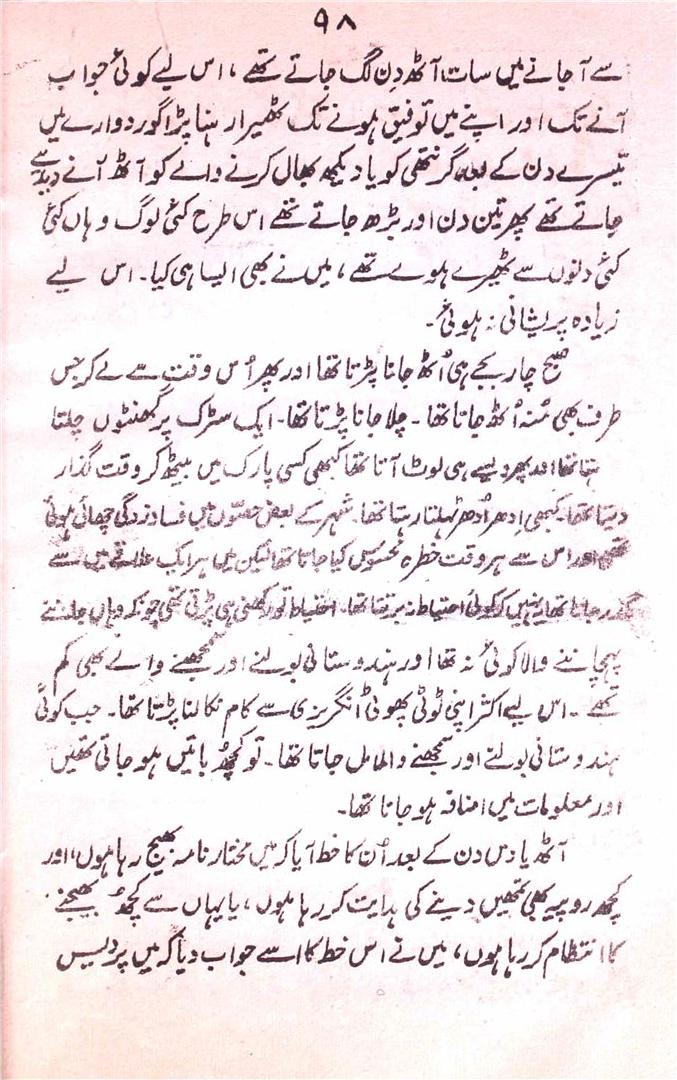 ۹۸
سے آ جانے میں سات آٹھ دن لگ جاتے تھے، اس لیے کوئی جواب
آنے تک اور اپنے میں توفیق ہونے تک ٹھیرا رہنا پڑا گوردوارے میں
تیسرے دن کے بعد گرنتھی کو یا دیکھ بھال کرنے والے کو آٹھ آنے دیدیے
جاتے تھے پھر تین دن اور بڑھ جاتے تھے اس طرح کئی لوگ وہاں کئی
کئی دنوں سے ٹھیرے ہوے تھے، میں نے بھی ایسا ہی کیا۔ اس لیے
زیادہ پریشانی نہ ہوئی۔
صبح چار بجے ہی اُٹھ جانا پڑتا تھا اور پھر اُس وقت سے لے کر جس
طرف بھی مُنہ اُٹھ جاتا تھا۔ چلا جانا پڑتا تھا۔ ایک سڑک پر گھنٹوں چلتا
رہتا تھا اور پھر ویسے ہی لوٹ آتا تھا کبھی کسی پارک میں بیٹھ کر وقت گذار
دیتا تھا۔ کبھی اِدھر اُدھر ٹہلتا رہتا تھا۔ شہر کے بعض حصّوں میں فساد زدگی چھائی ہوئی
تھی اور اس سے ہر وقت خطرہ محسوس کیا جاتا تھا لیکن میں ہر ایک علاقے میں سے
گذر جاتا تھا یہ نہیں کہ کوئی احتیاط نہ برتتا تھا۔ احتیاط تو رکھنی ہی پڑتی تھی چونکہ وہاں جاننے
پہچاننے والا کوئی نہ تھا اور ہندوستانی بولنے اور سمجھنے والے بھی کم
تھے۔ اس لیے اکثر اپنی ٹوٹی پھوٹی انگریزی سے کام نکالنا پڑتا تھا۔ جب کوئی
ہندوستانی بولنے اور سمجھنے والا مل جاتا تھا۔ تو کچھ باتیں ہو جاتی تھیں
اور معلومات میں اضافہ ہو جاتا تھا۔
آٹھ یا دس دن کے بعد اُن کا خط آیا کہ میں مختار نامہ بھیج رہا ہوں، اور
کچھ روپیہ بھی تمھیں دینے کی ہدایت کر رہا ہوں، یا یہاں سے کچھ بھیجنے
کا انتظام کر رہا ہوں، میں نے اس خط کا اسے جواب دیا کہ میں پردیس